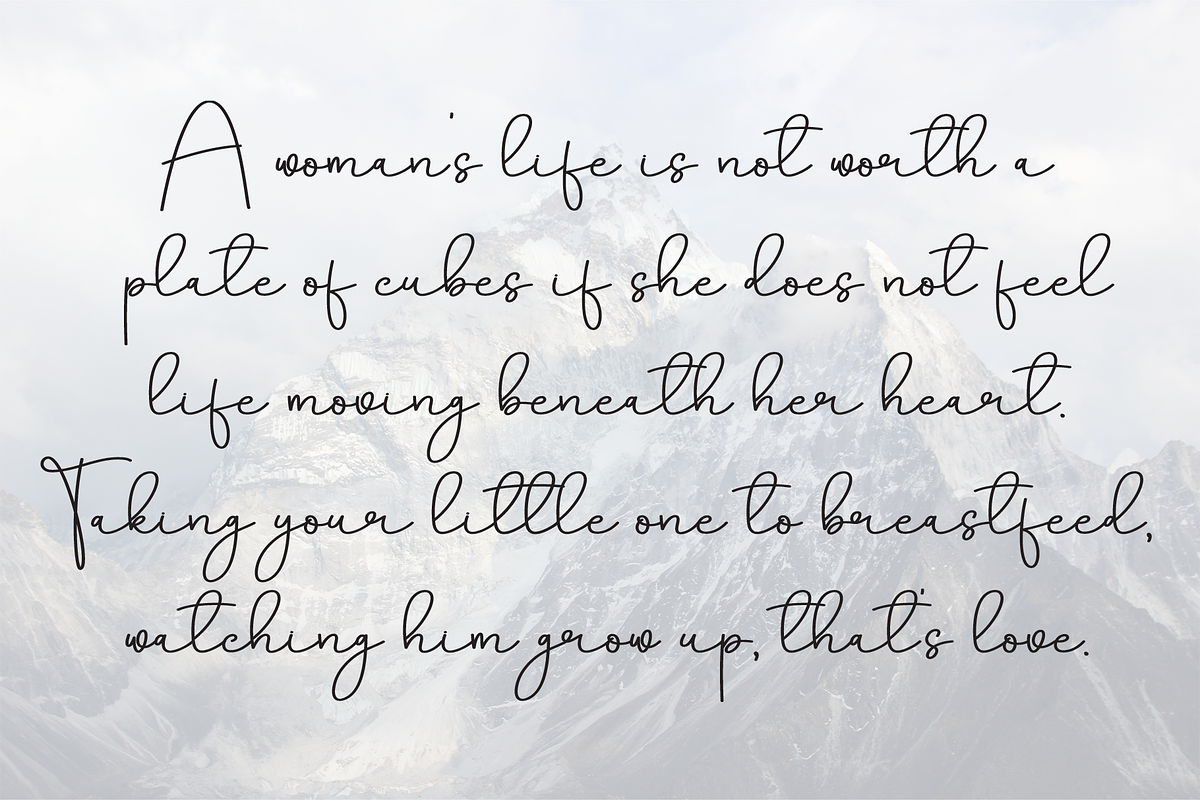 A woman's life is not worth a
plate of cubes if she does not feel
life moving beneath her heart.
Taking your little one to breastfeed,
watching him grow up, that's love.